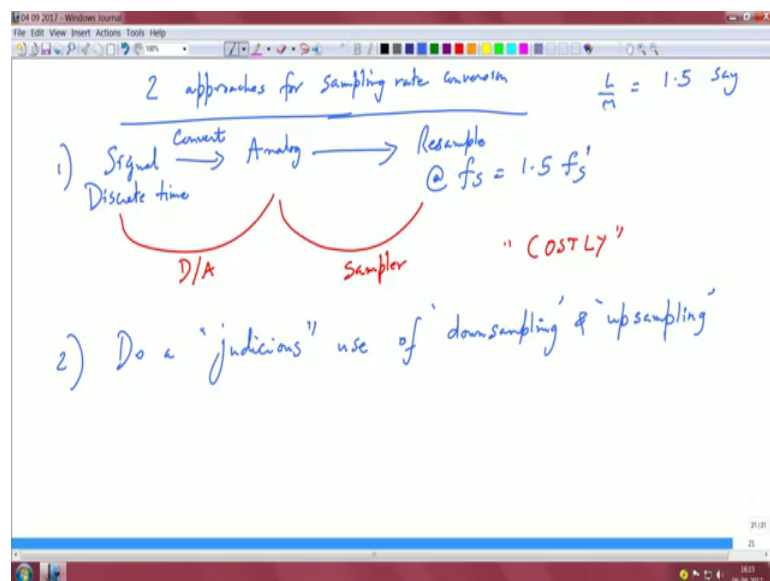 04 09 2017 - Windows Journal
File Edit View Insert Actions Tools Help
100%
2 approaches for sampling rate conversion
L/M = 1.5 say
1) Signal Convert Analog Resample
Discrete time @ fs = 1.5 fs'
D/A Sampler "COSTLY"
2) Do a "judicious" use of 'downsampling' & 'upsampling'
21/21
21
16:15